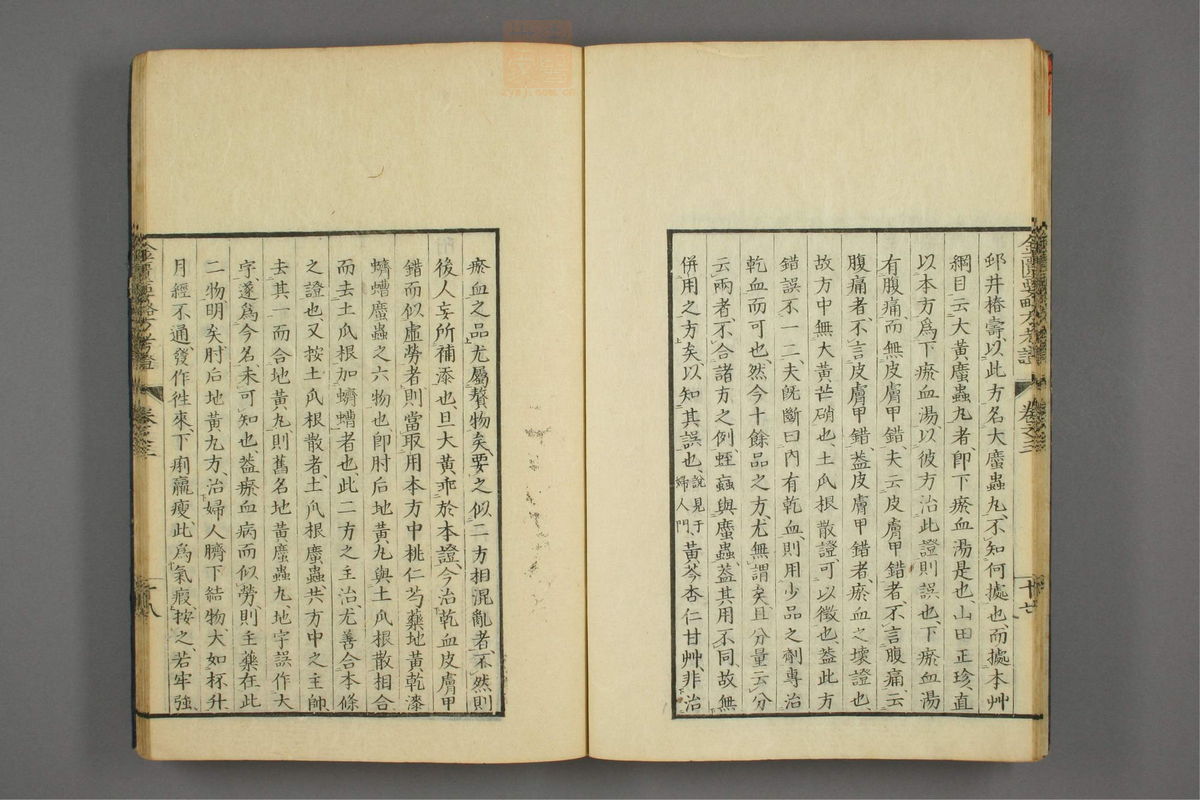 邱井椿壽、以此方名大䗪蟲丸、不知何據也、而據本艸
綱目云、大黃䗪蟲丸者、卽下瘀血湯是也、山田正珍、直
以本方爲下瘀血湯、以彼方治此證則誤也、下瘀血湯
有腹痛、而無皮膚甲錯、夫云皮膚甲錯者、不言腹痛、云
腹痛者、不言皮膚甲錯、葢皮膚甲錯者、瘀血之壞證也、
故方中無大黃芒硝也、土瓜根散證可以徵也、葢此方
錯誤不一二、夫旣斷曰內有乾血、則用少品之劑專治
乾血而可也、然今十餘品之方、尤無謂矣、且分量云分
云兩者、不合諸方之例、蛭蝱與䗪蟲、葢其用不同、故無
併用之方矣、以知其誤也、說見于婦人門、黃芩杏仁甘艸、非治
瘀血之品、尤屬贅物矣、要之似二方相混亂者、不然則
後人妄所補添也、且大黃乖於本證、今治乾血皮膚甲
錯而似虛勞者、則當取用本方中桃仁芍藥地黃乾漆
蠐螬䗪蟲之六物也、卽肘后地黃丸與土瓜根散相合
而去土瓜根加蠐螬者也、此二方之主治尤善合本條
之證也、又按土瓜根散者、土瓜根䗪蟲、共方中之主帥、
去其一而合地黃丸、則舊名地黃䗪蟲丸、地字誤作大
字、遂爲今名、未可知也、葢瘀血病而似勞、則主藥在此
二物、明矣、肘后地黃丸方、治婦人臍下結物、大如杯升、
月經不通、發作徃來、下痢羸瘦、此爲氣瘕、按之、若牢強、
卷之三